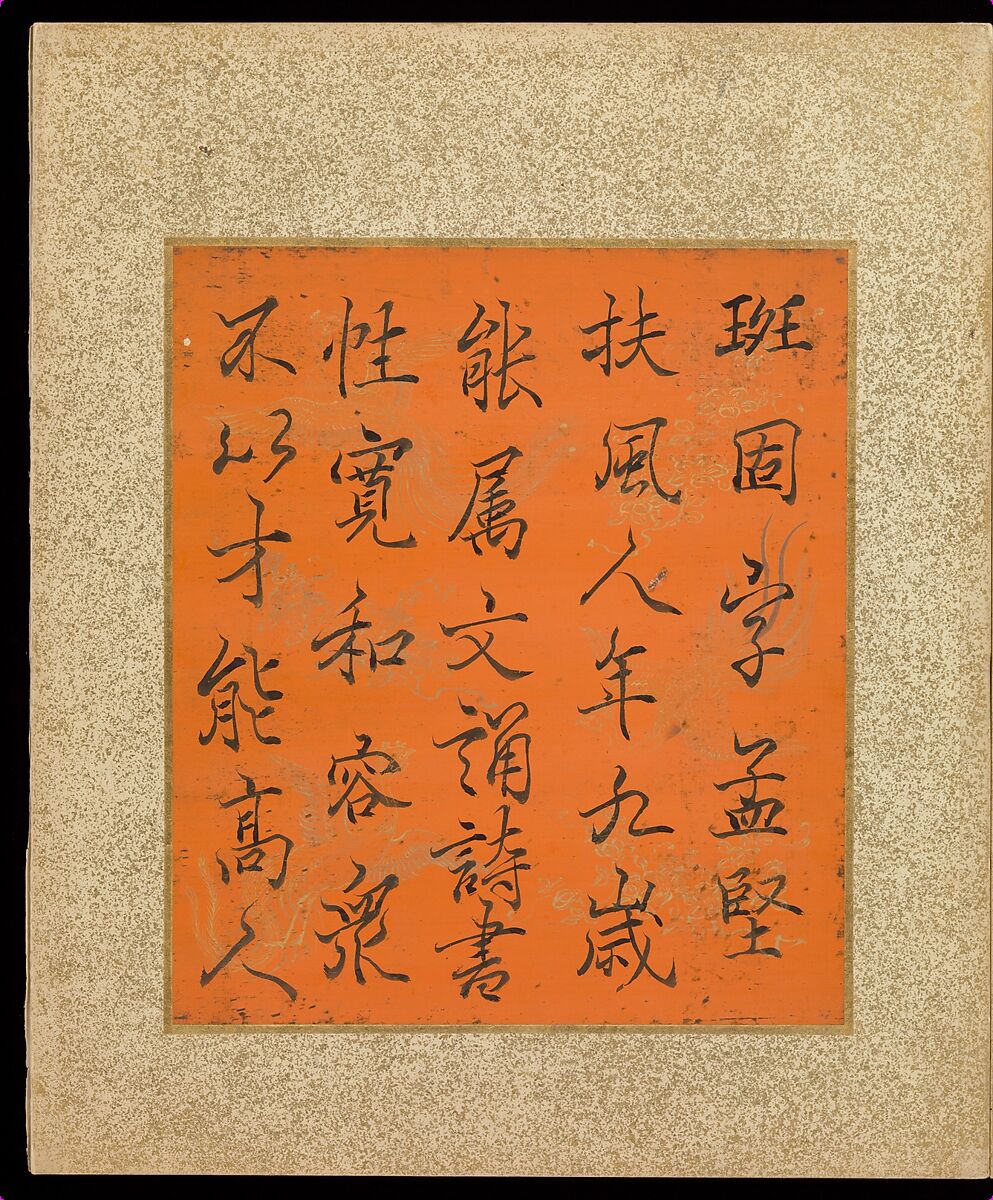 班固字孟堅
扶風人年九歲
能属文誦詩書
性寬和容衆
不以才能高人